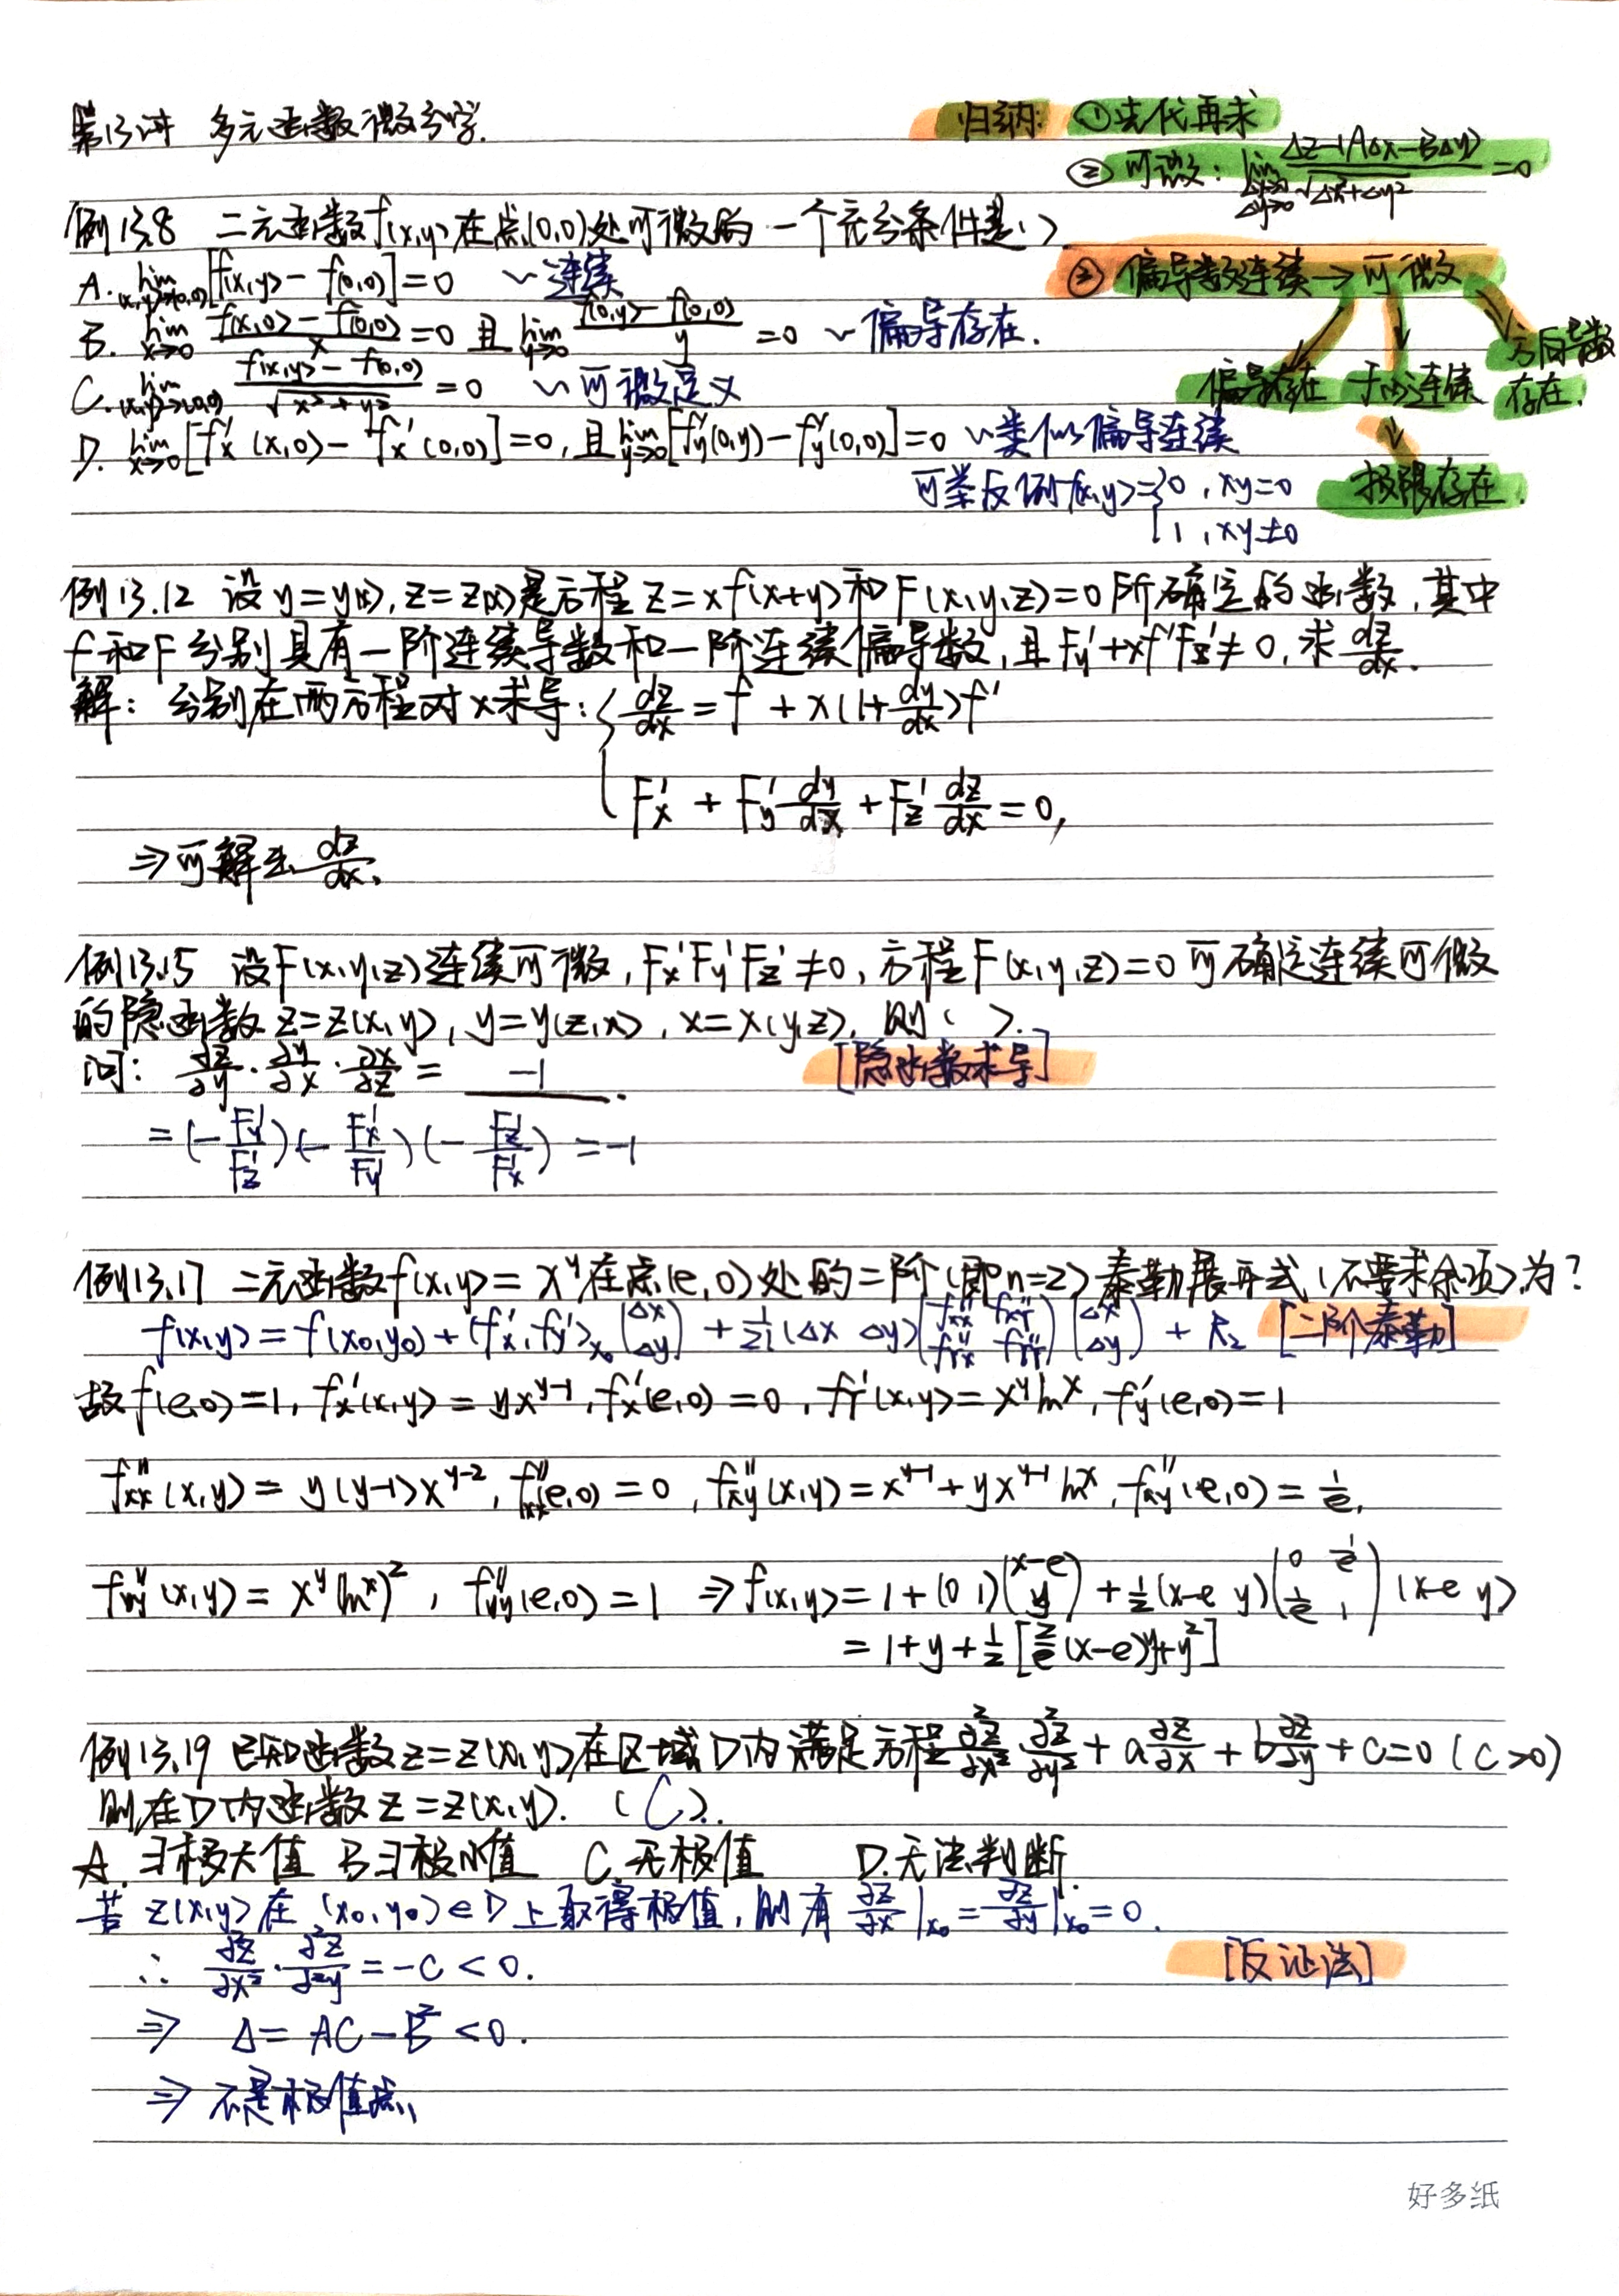 第13讲 多元函数微分学.
归纳: ①先代再求
②可微: lim Δx→0 Δy→0 Δz-(AΔx-BΔy)/√Δx²+Δy² =0
例13.8 二元函数f(x,y)在点(0,0)处可微的一个充分条件是( )
A. lim (x,y)→(0,0) [f(x,y)-f(0,0)]=0 ~连续
③ 偏导数连续→可微
B. lim x→0 f(x,0)-f(0,0)/x =0 且 lim y→0 f(0,y)-f(0,0)/y =0 ~偏导存在.
C. lim (x,y)→(0,0) f(x,y)-f(0,0)/√x²+y² =0 ~可微定义
偏导存在 连续 方向导数存在.
D. lim x→0 [f'x(x,0)-f'x(0,0)]=0, 且 lim y→0 [f'y(0,y)-f'y(0,0)]=0 ~类似偏导连续
可举反例f(x,y)={0, xy=0
1, xy≠0
极限存在.
例13.12 设y=y(x), z=z(x)是方程z=xf(x+y)和F(x,y,z)=0所确定的函数, 其中
f和F分别具有一阶连续导数和一阶连续偏导数, 且F'y+xf'F'z≠0, 求dz/dx.
解: 分别在两方程对x求导: { dz/dx = f + x(1+dy/dx)f'
F'x + F'y dy/dx + F'z dz/dx = 0,
⇒可解出 dz/dx.
例13.15 设F(x,y,z)连续可微, F'xF'yF'z≠0, 方程F(x,y,z)=0可确定连续可微
的隐函数z=z(x,y), y=y(z,x), x=x(y,z), 则( ).
问: ∂z/∂y·∂y/∂x·∂x/∂z = -1. [隐函数求导]
=(-F'y/F'z)(-F'x/F'y)(-F'z/F'x)=-1
例13.17 二元函数f(x,y)=x^y在点(e,0)处的二阶(即n=2)泰勒展开式(不要求余项)为?
f(x,y)=f(x₀,y₀)+(f'x,f'y)x₀(Δx Δy)+1/2!(Δx Δy)(f''xx f''xy f''yx f''yy)(Δx Δy)+R₂ [二阶泰勒]
故f(e,0)=1, f'x(x,y)=yx^(y-1), f'x(e,0)=0, f'y(x,y)=x^y lnx, f'y(e,0)=1
f''xx(x,y)=y(y-1)x^(y-2), f''xx(e,0)=0, f''xy(x,y)=x^(y-1)+yx^(y-1)lnx, f''xy(e,0)=1/e,
f''yy(x,y)=x^y(lnx)², f''yy(e,0)=1 ⇒f(x,y)=1+(0 1)(x-e y)+1/2(x-e y)(0 1/e 1/e 1)(x-e y)
=1+y+1/2[2/e(x-e)y+y²]
例13.19 已知函数z=z(x,y)在区域D内满足方程∂²z/∂x² ∂²z/∂y²+a∂z/∂x+b∂z/∂y+C=0 (C>0)
则在D内函数z=z(x,y). (C).
A. ∃极大值 B.∃极小值 C.无极值 D.无法判断.
若z(x,y)在(x₀,y₀)∈D上取得极值, 则有∂z/∂x|x₀=∂z/∂y|x₀=0.
∴ ∂²z/∂x²·∂²z/∂²y=-C<0. [反证法]
⇒ Δ=AC-B²<0.
⇒ 不是极值点,
好多纸